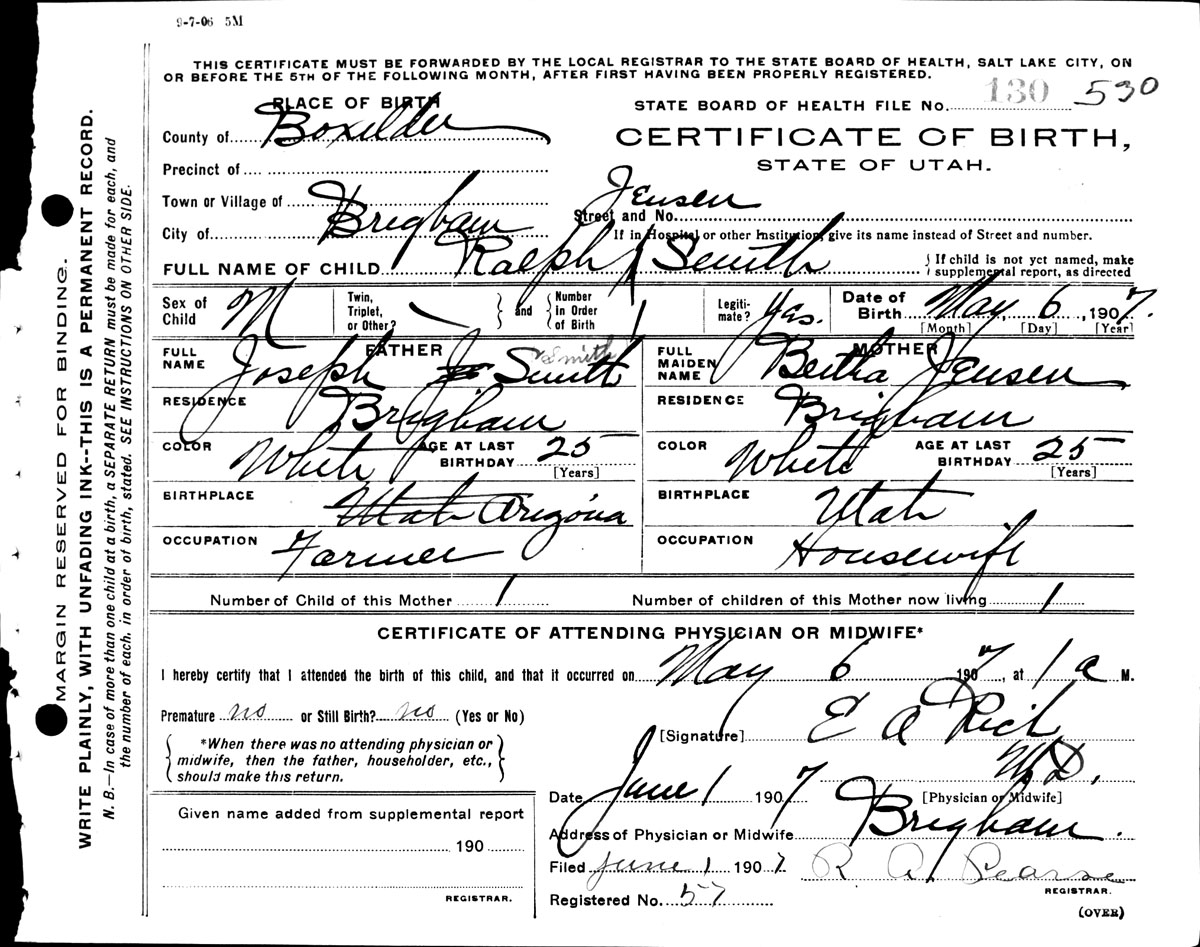 9-7-06 5M
THIS CERTIFICATE MUST BE FORWARDED BY THE LOCAL REGISTRAR TO THE STATE BOARD OF HEALTH, SALT LAKE CITY, ON
OR BEFORE THE 5TH OF THE FOLLOWING MONTH, AFTER FIRST HAVING BEEN PROPERLY REGISTERED.
PLACE OF BIRTH
STATE BOARD OF HEALTH FILE No. 130 530
County of Boxelder
CERTIFICATE OF BIRTH,
STATE OF UTAH.
Precinct of
Town or Village of
City of Brigham
Jensen
Street and No.
If in Hospital or other Institution, give its name instead of Street and number.
FULL NAME OF CHILD Ralph Smith
If child is not yet named, make
supplemental report, as directed
Sex of Child M
Twin, Triplet, or Other?
and Number in Order of Birth 1
Legiti-mate? Yes.
Date of Birth May 6, 1907.
[Month] [Day] [Year]
FATHER
FULL NAME Joseph Smith Smith
RESIDENCE Brigham
COLOR White AGE AT LAST BIRTHDAY 25 [Years]
BIRTHPLACE Utah Arizona
OCCUPATION Farmer
MOTHER
FULL MAIDEN NAME Bertha Jensen
RESIDENCE Brigham
COLOR White AGE AT LAST BIRTHDAY 25 [Years]
BIRTHPLACE Utah
OCCUPATION Housewife
Number of Child of this Mother 1 Number of children of this Mother now living 1
CERTIFICATE OF ATTENDING PHYSICIAN OR MIDWIFE*
I hereby certify that I attended the birth of this child, and that it occurred on May 6 1907, at 1 a M.
Premature no or Still Birth? no (Yes or No)
[Signature] E A Rich
M.D.
[Physician or Midwife]
*When there was no attending physician or
midwife, then the father, householder, etc.,
should make this return.
Date June 1 1907
Address of Physician or Midwife Brigham.
Filed June 1 1907 R A Pearse
REGISTRAR.
Registered No. 57
(OVER)
Given name added from supplemental report
190
REGISTRAR.
MARGIN RESERVED FOR BINDING.
WRITE PLAINLY, WITH UNFADING INK--THIS IS A PERMANENT RECORD.
N. B.—In case of more than one child at a birth, a SEPARATE RETURN must be made for each, and
the number of each, in order of birth, stated. SEE INSTRUCTIONS ON OTHER SIDE.